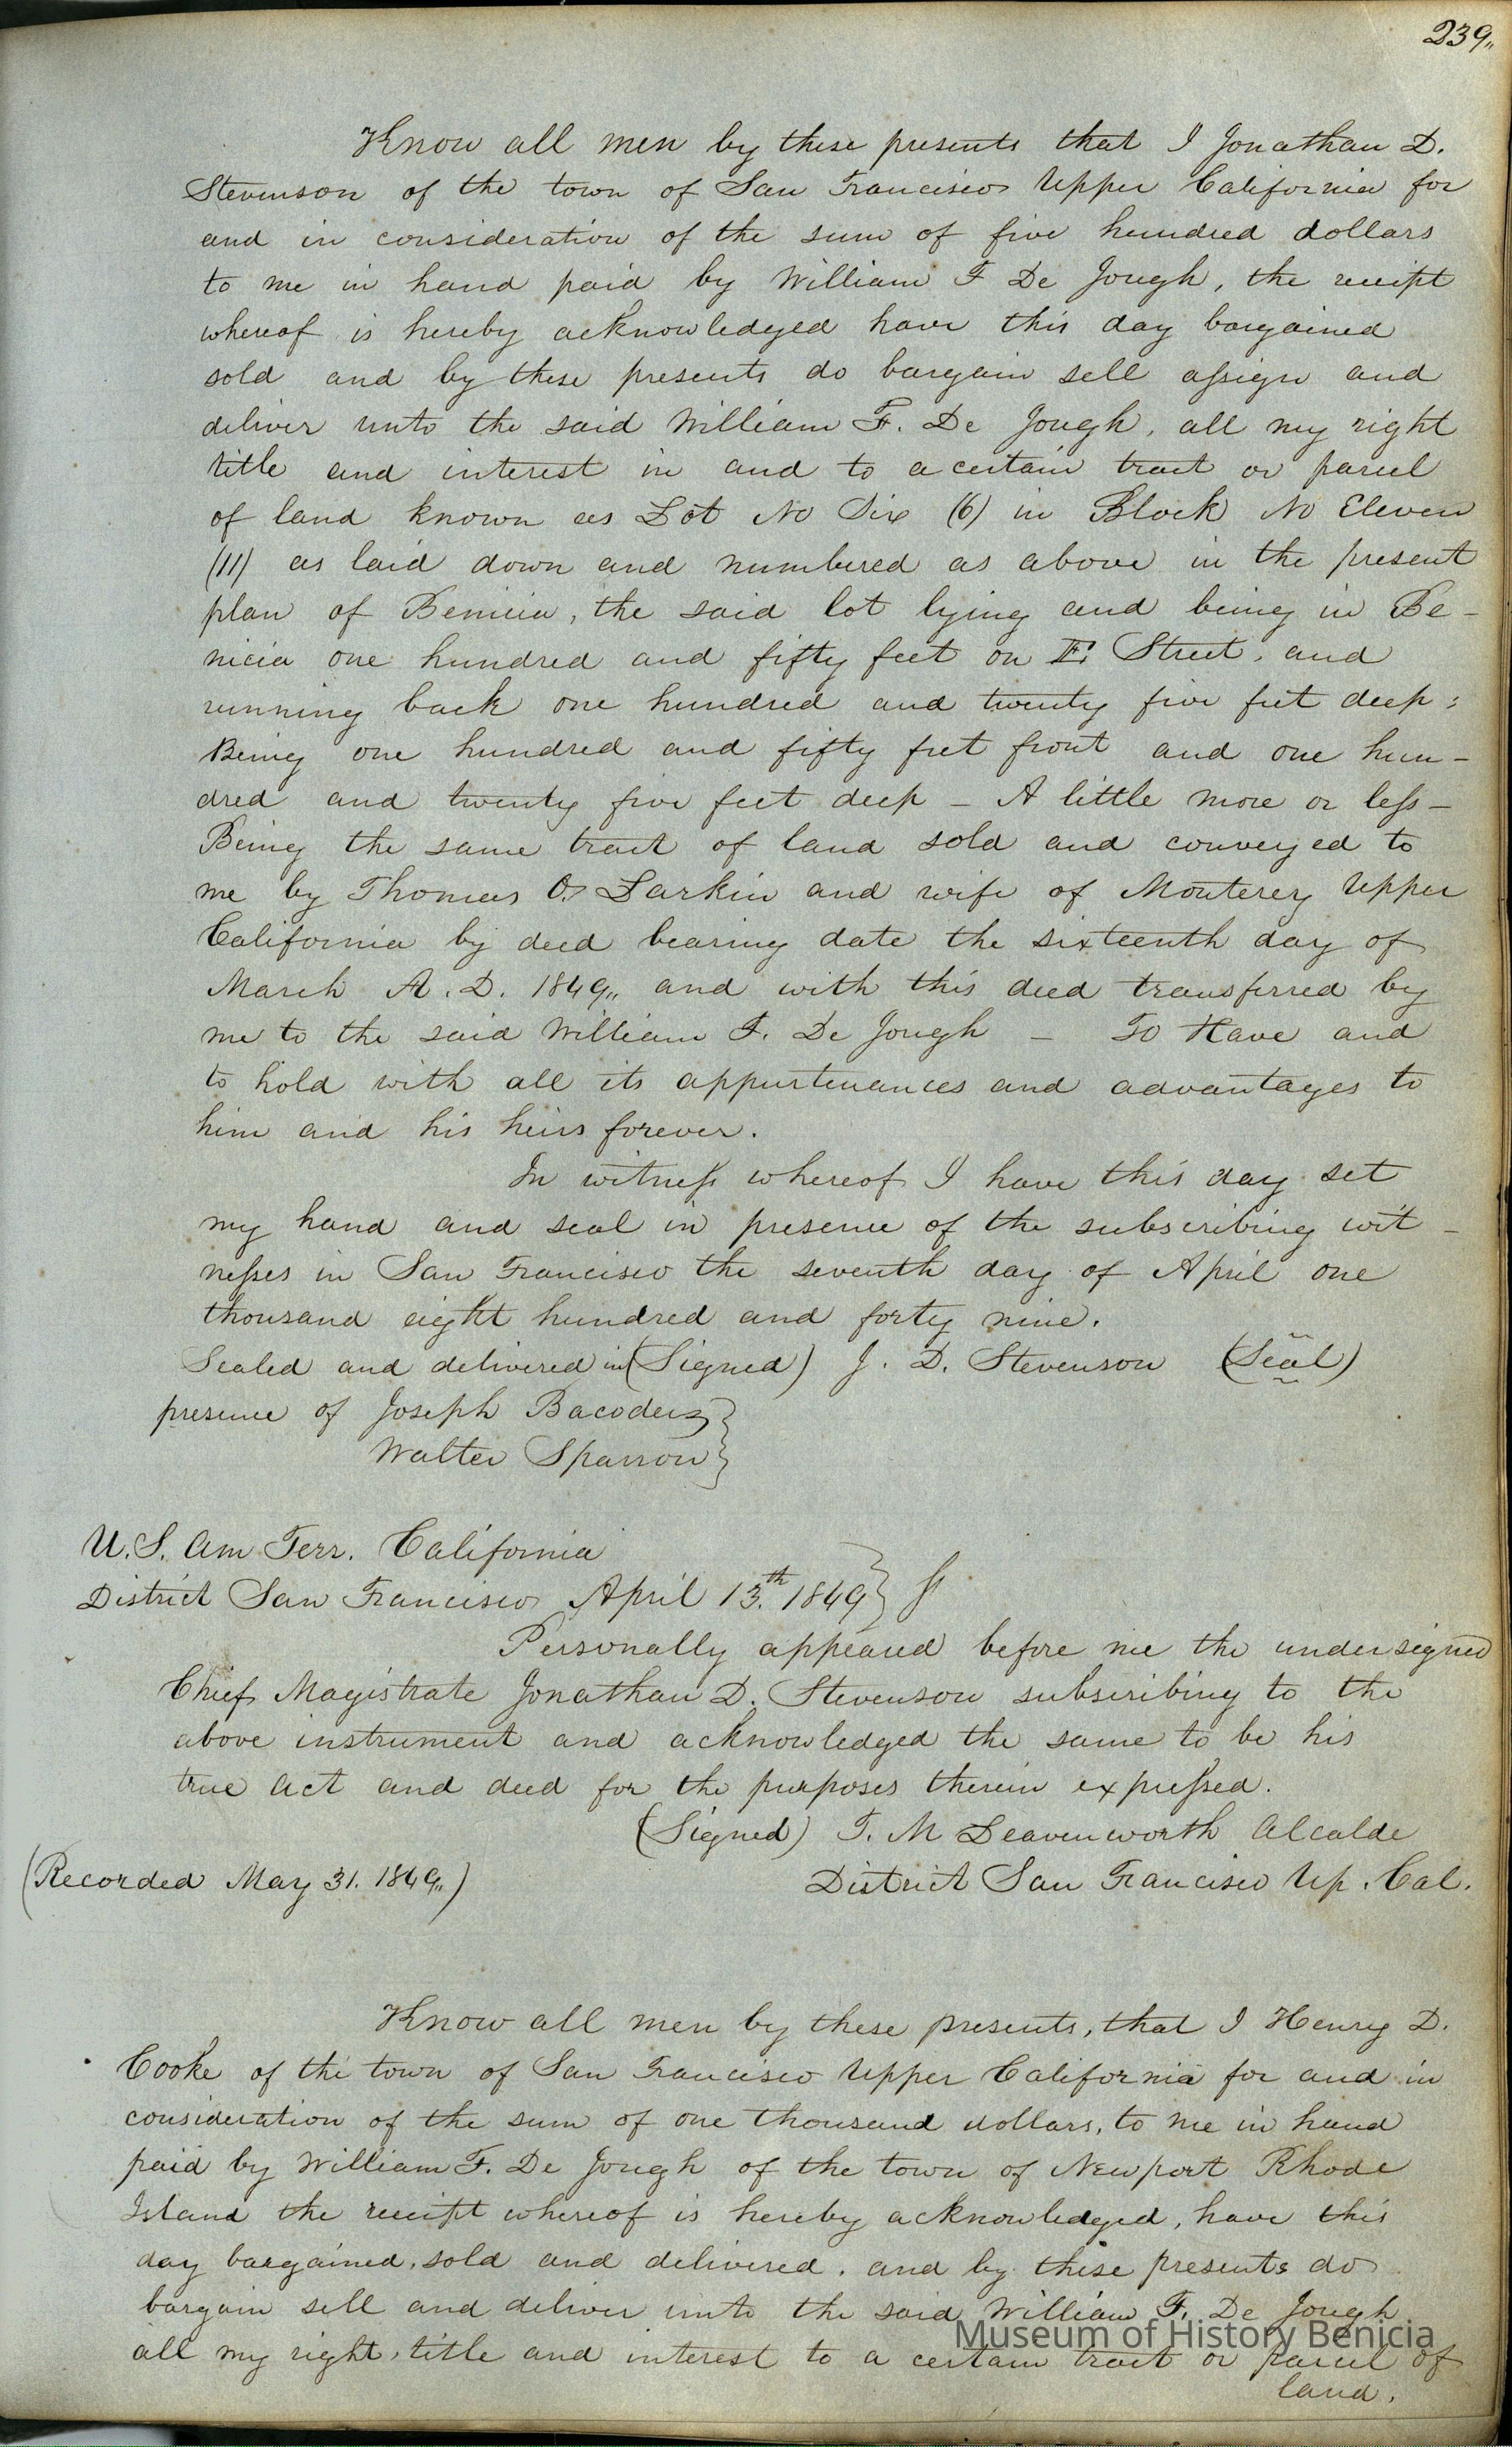 239,,
Know all men by these presents that I Jonathan D.
Stevenson of the town of San Francisco Upper California for
and in consideration of the sum of five hundred dollars
to me in hand paid by William F De Jough, the receipt
whereof is hereby acknowledged have this day bargained
sold and by these presents do bargain sell assign and
deliver unto the said William F. De Jough, all my right
title and interest in and to a certain tract or parcel
of land known as Lot No Six (6) in Block No Eleven
(11) as laid down and numbered as above in the present
plan of Benicia, the said lot lying and being in Be-
nicia one hundred and fifty feet on E. Street, and
running back one hundred and twenty five feet deep;
Being one hundred and fifty feet front and one hun-
dred and twenty five feet deep - A little more or less -
Being the same tract of land sold and conveyed to
me by Thomas O. Larkin and wife of Monterey Upper
California by deed bearing date the sixteenth day of
March A.D. 1849,, and with this deed transferred by
me to the said William F. De Jough - To Have and
to hold with all its appurtenances and advantages to
him and his heirs forever.
In witness whereof I have this day set
my hand and seal in presence of the subscribing wit-
nesses in San Francisco the seventh day of April one
thousand eight hundred and forty nine.
Sealed and delivered in (Signed) J. D. Stevenson (Seal)
presence of Joseph Bacoders }
Walter Sparrow }
U.S. Am Terr. California
District San Francisco April 13.th 1849 } ss
Personally appeared before me the undersigned
Chief Magistrate Jonathan D. Stevenson subscribing to the
above instrument and acknowledged the same to be his
true act and deed for the purposes therein expressed.
(Signed) T. M Leavenworth Alcalde
(Recorded May 31. 1849,,) District San Francisco Up. Cal.
Know all men by these presents, that I Henry D.
Cooke of the town of San Francisco Upper California for and in
consideration of the sum of one thousand dollars, to me in hand
paid by William F. De Jough of the town of Newport Rhode
Island the receipt whereof is hereby acknowledged, have this
day bargained, sold and delivered, and by these presents do
bargain sell and deliver unto the said William F. De Jough
all my right, title and interest to a certain tract or parcel of
land.
Museum of History Benicia